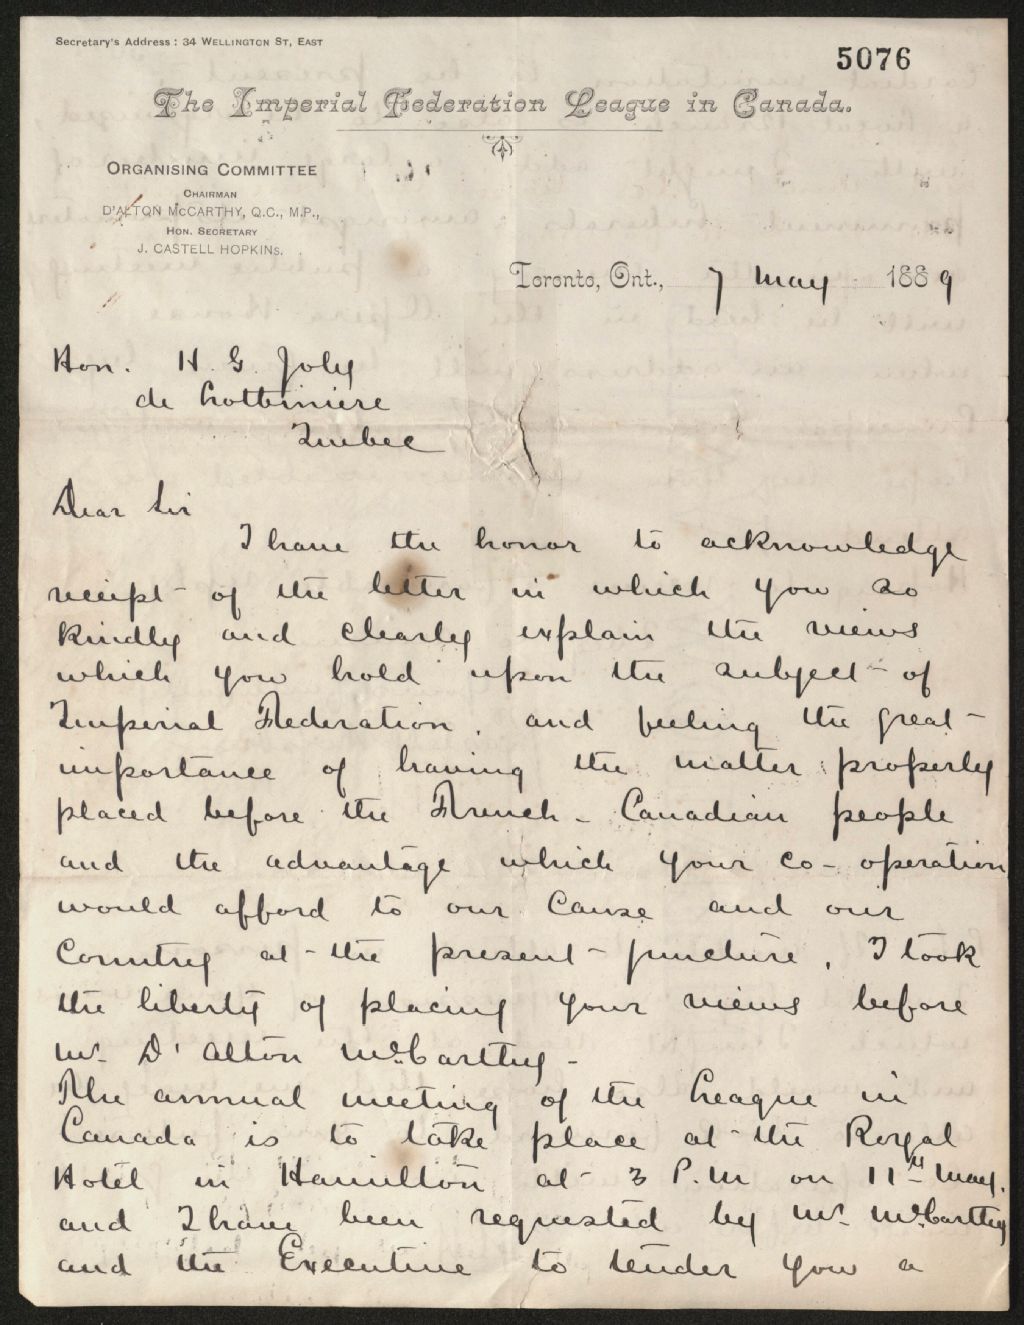 Secretary's Address: 34 WELLINGTON ST, EAST
5076
The Imperial Federation League in Canada.
ORGANISING COMMITTEE
CHAIRMAN
D'ALTON McCARTHY, Q.C., M.P.,
HON. SECRETARY
J. CASTELL HOPKINS.
Toronto, Ont., 7 May 1889
Hon. H. G. Joly
de Lotbiniere
Quebec
Dear Sir
I have the honor to acknowledge
receipt of the letter in which you so
kindly and clearly explain the views
which you hold upon the subject of
Imperial Federation, and feeling the great
importance of having the matter properly
placed before the French-Canadian people
and the advantage which your co-operation
would afford to our cause and our
Country at the present juncture, I took
the liberty of placing your views before
Mr. D'Alton McCarthy -
The annual meeting of the League in
Canada is to take place at the Royal
Hotel in Hamilton at 3 P.M on 11th May.
and I have been requested by Mr. McCarthy
and the Executive to tender you a